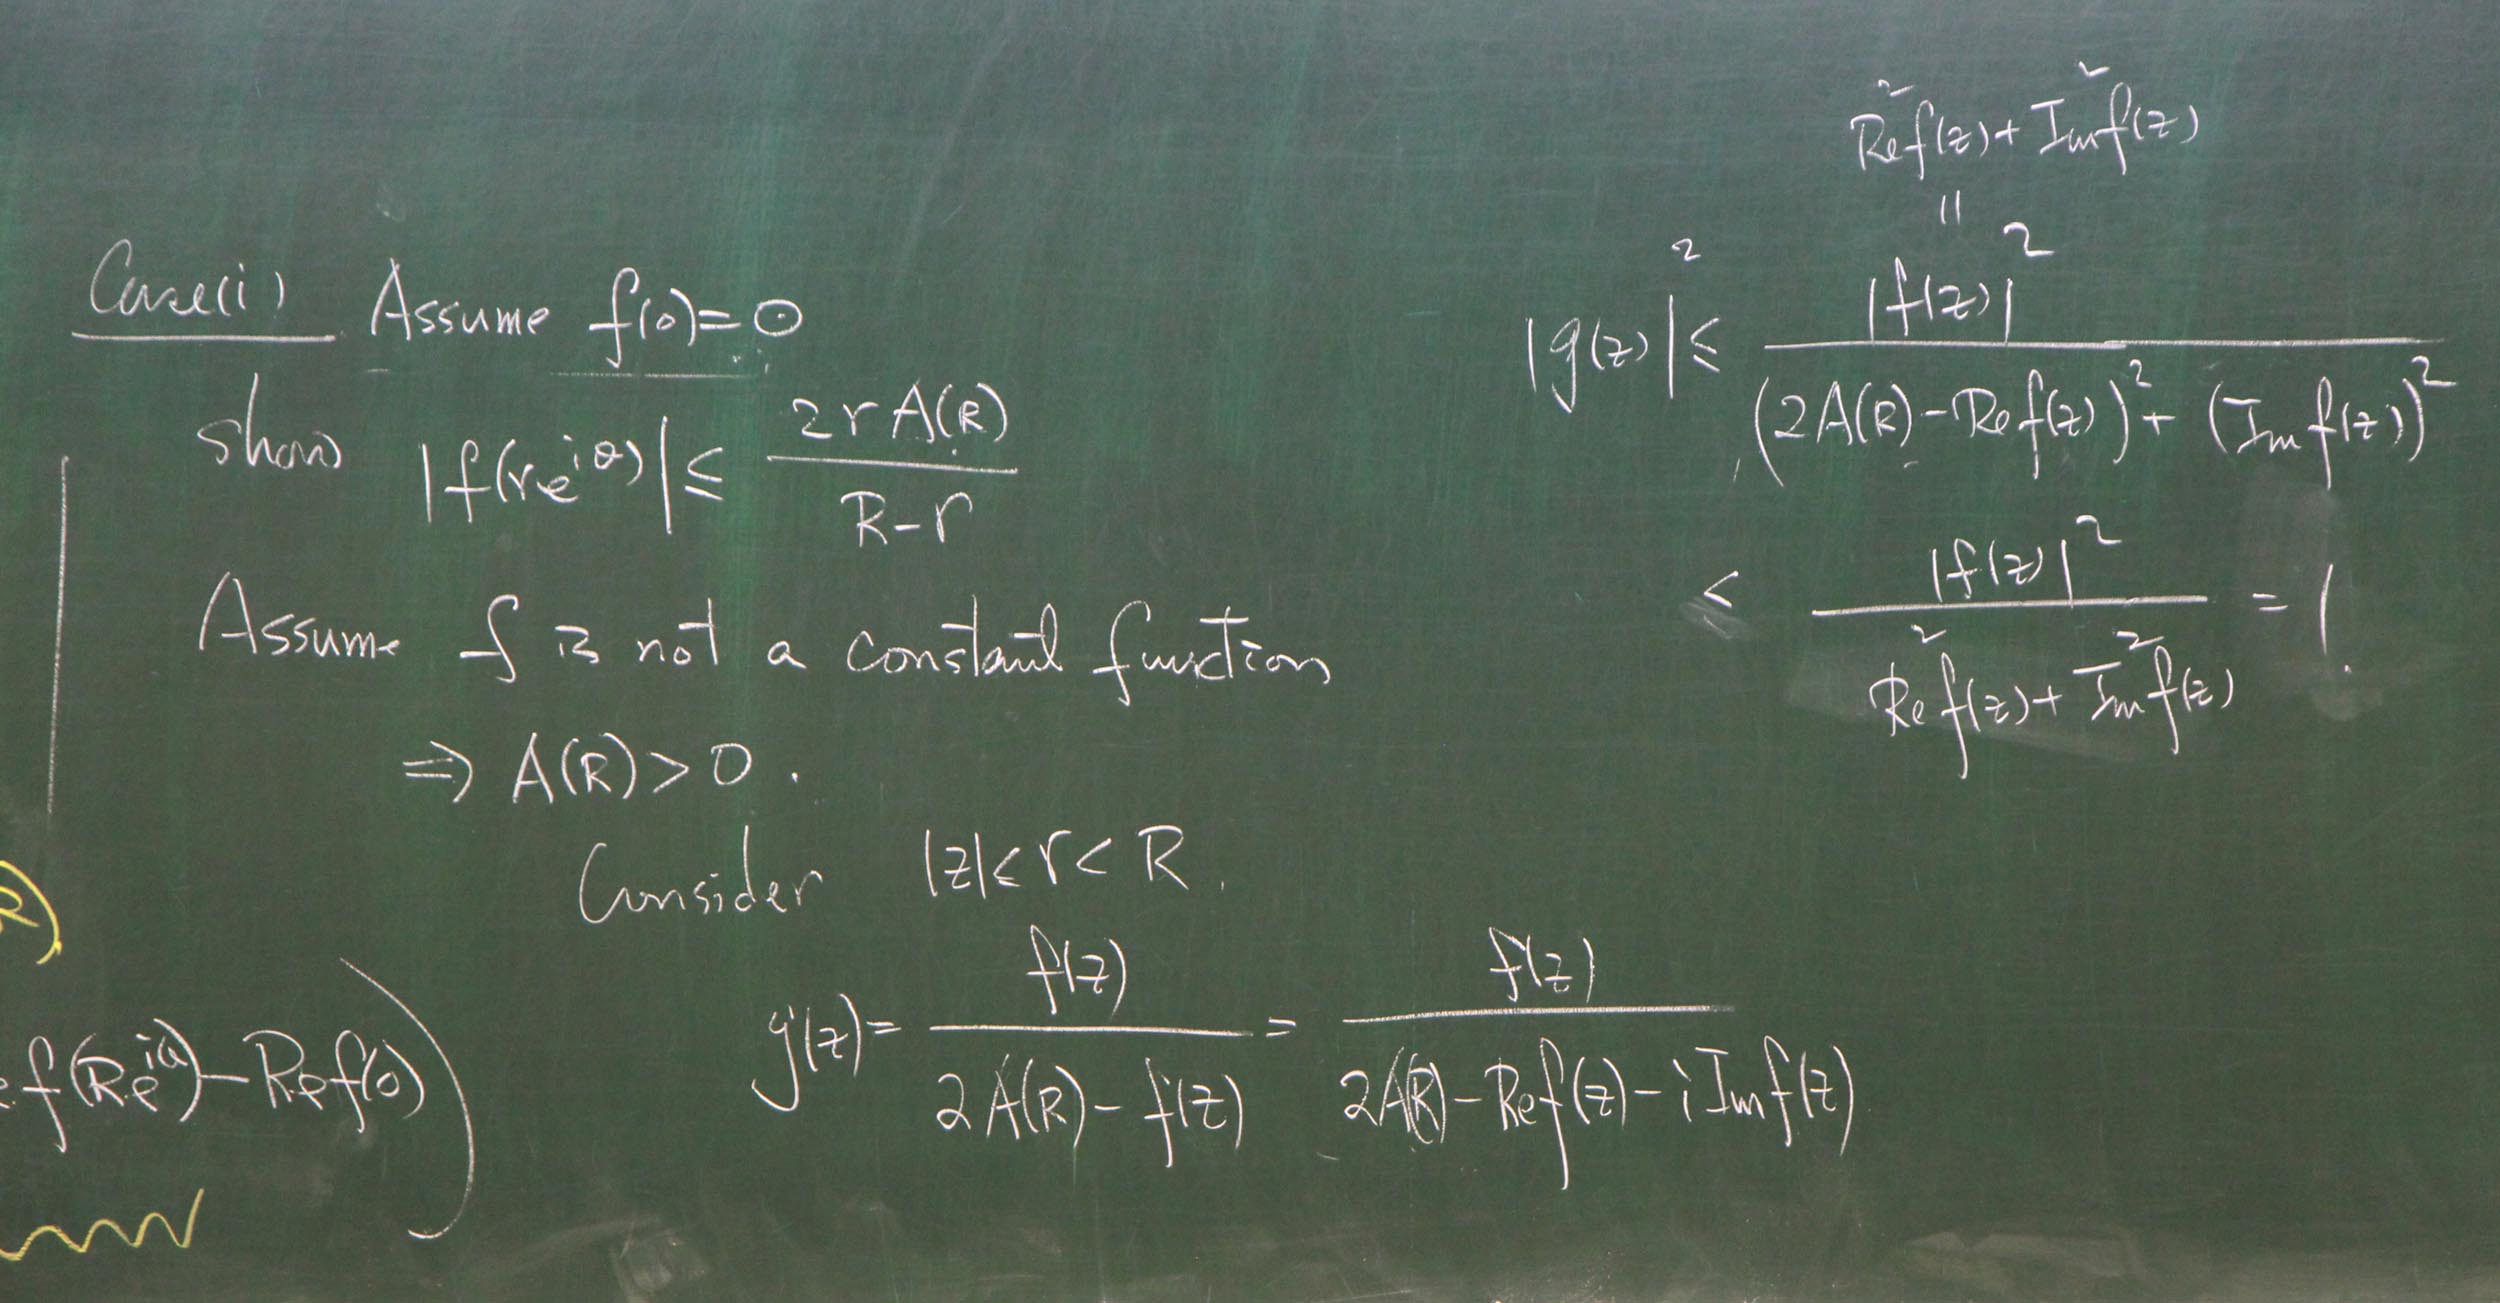 Case(i) Assume f(0)=0
show |f(re^{iθ})| ≤ \frac{2rA(R)}{R-r}
Assume f is not a constant function
⇒ A(R)>0.
Consider |z|≤r<R.
g(z)= \frac{f(z)}{2A(R)-f(z)} = \frac{f(z)}{2A(R)-Ref(z)-iImf(z)}
Re^2f(z)+Im^2f(z)
||
|g(z)|^2 ≤ \frac{|f(z)|^2}{(2A(R)-Ref(z))^2+(Imf(z))^2}
< \frac{|f(z)|^2}{Re^2f(z)+Im^2f(z)} =1.
R)
f(Re^{iθ})-Ref(0))